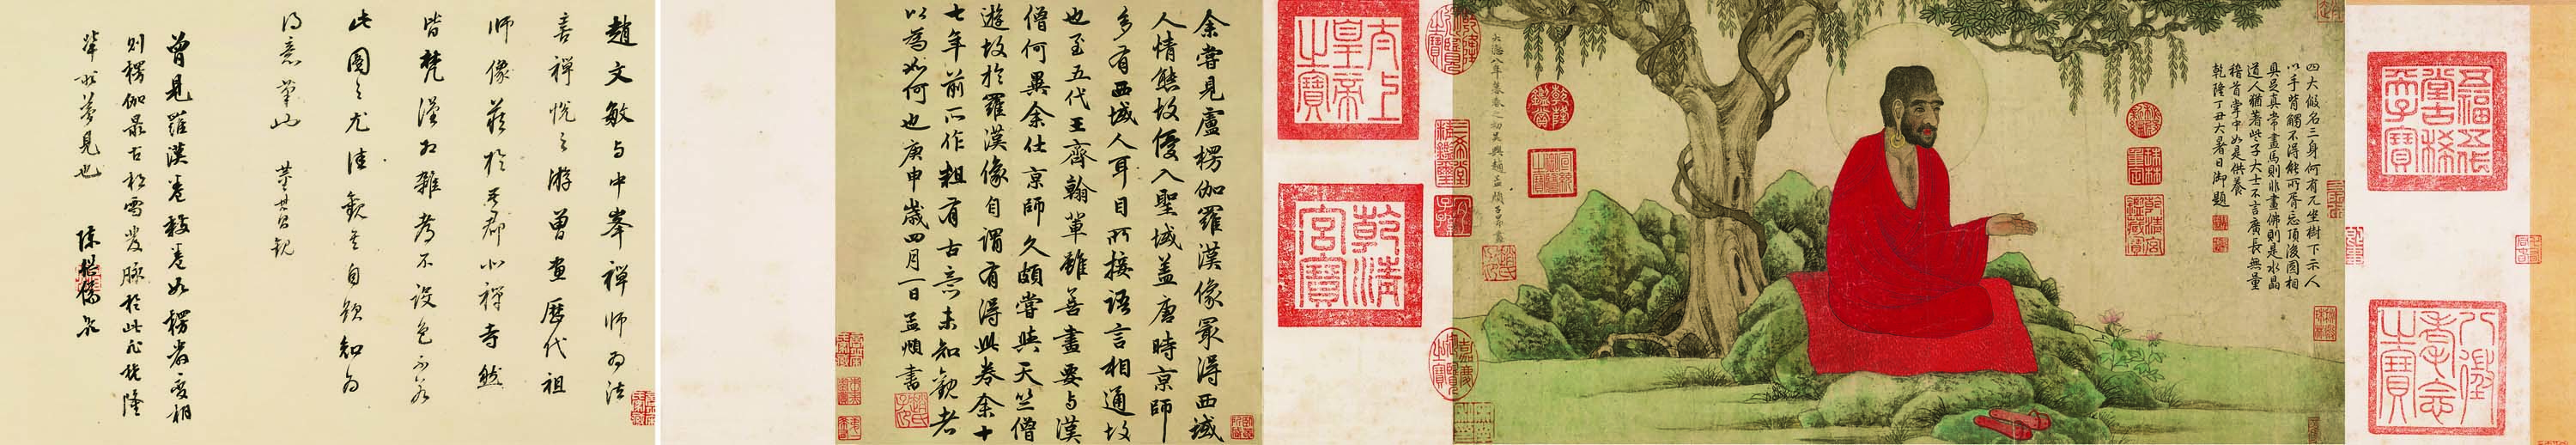 五福五代堂古稀天子寶
八徵耄念之寶
四大假名三身何有兀坐樹下示人
以手背觸不得能所胥忘頂後圓相
具足真常畫馬則非畫佛則是水晶
道人猶著些子大士不言廣長無量
稽首掌中如是供養
乾隆丁丑大暑日御題
乾隆御覽之寶
乾隆鑑賞
三希堂精鑑璽
宜子孫
嘉慶御覽之寶
大德八年暮春之初吳興趙孟頫子昂畫
太上皇帝之寶
乾清宮寶
余嘗見盧楞伽羅漢像最得西域
人情態故優入聖域蓋唐時京師
多有西域人耳目所接語言相通故
也至五代王齊翰輩雖善畫要與漢
僧何異余仕京師久頗嘗與天竺僧
遊故於羅漢像自謂有得此卷余十
七年前所作粗有古意未知觀者
以為如何也庚申歲四月一日孟頫書
趙文敏與中峯禪師為法
喜禪悅之游曾畫歷代祖
師像藏於吾郡北禪寺然
皆梵漢相雜都不設色不若
此圖之尤佳觀其自題知為
得意筆也 董其昌觀
曾見羅漢卷數卷如楞嚴變相
則楞伽最古松雪發脉於此非
輩夢見也 陳繼儒